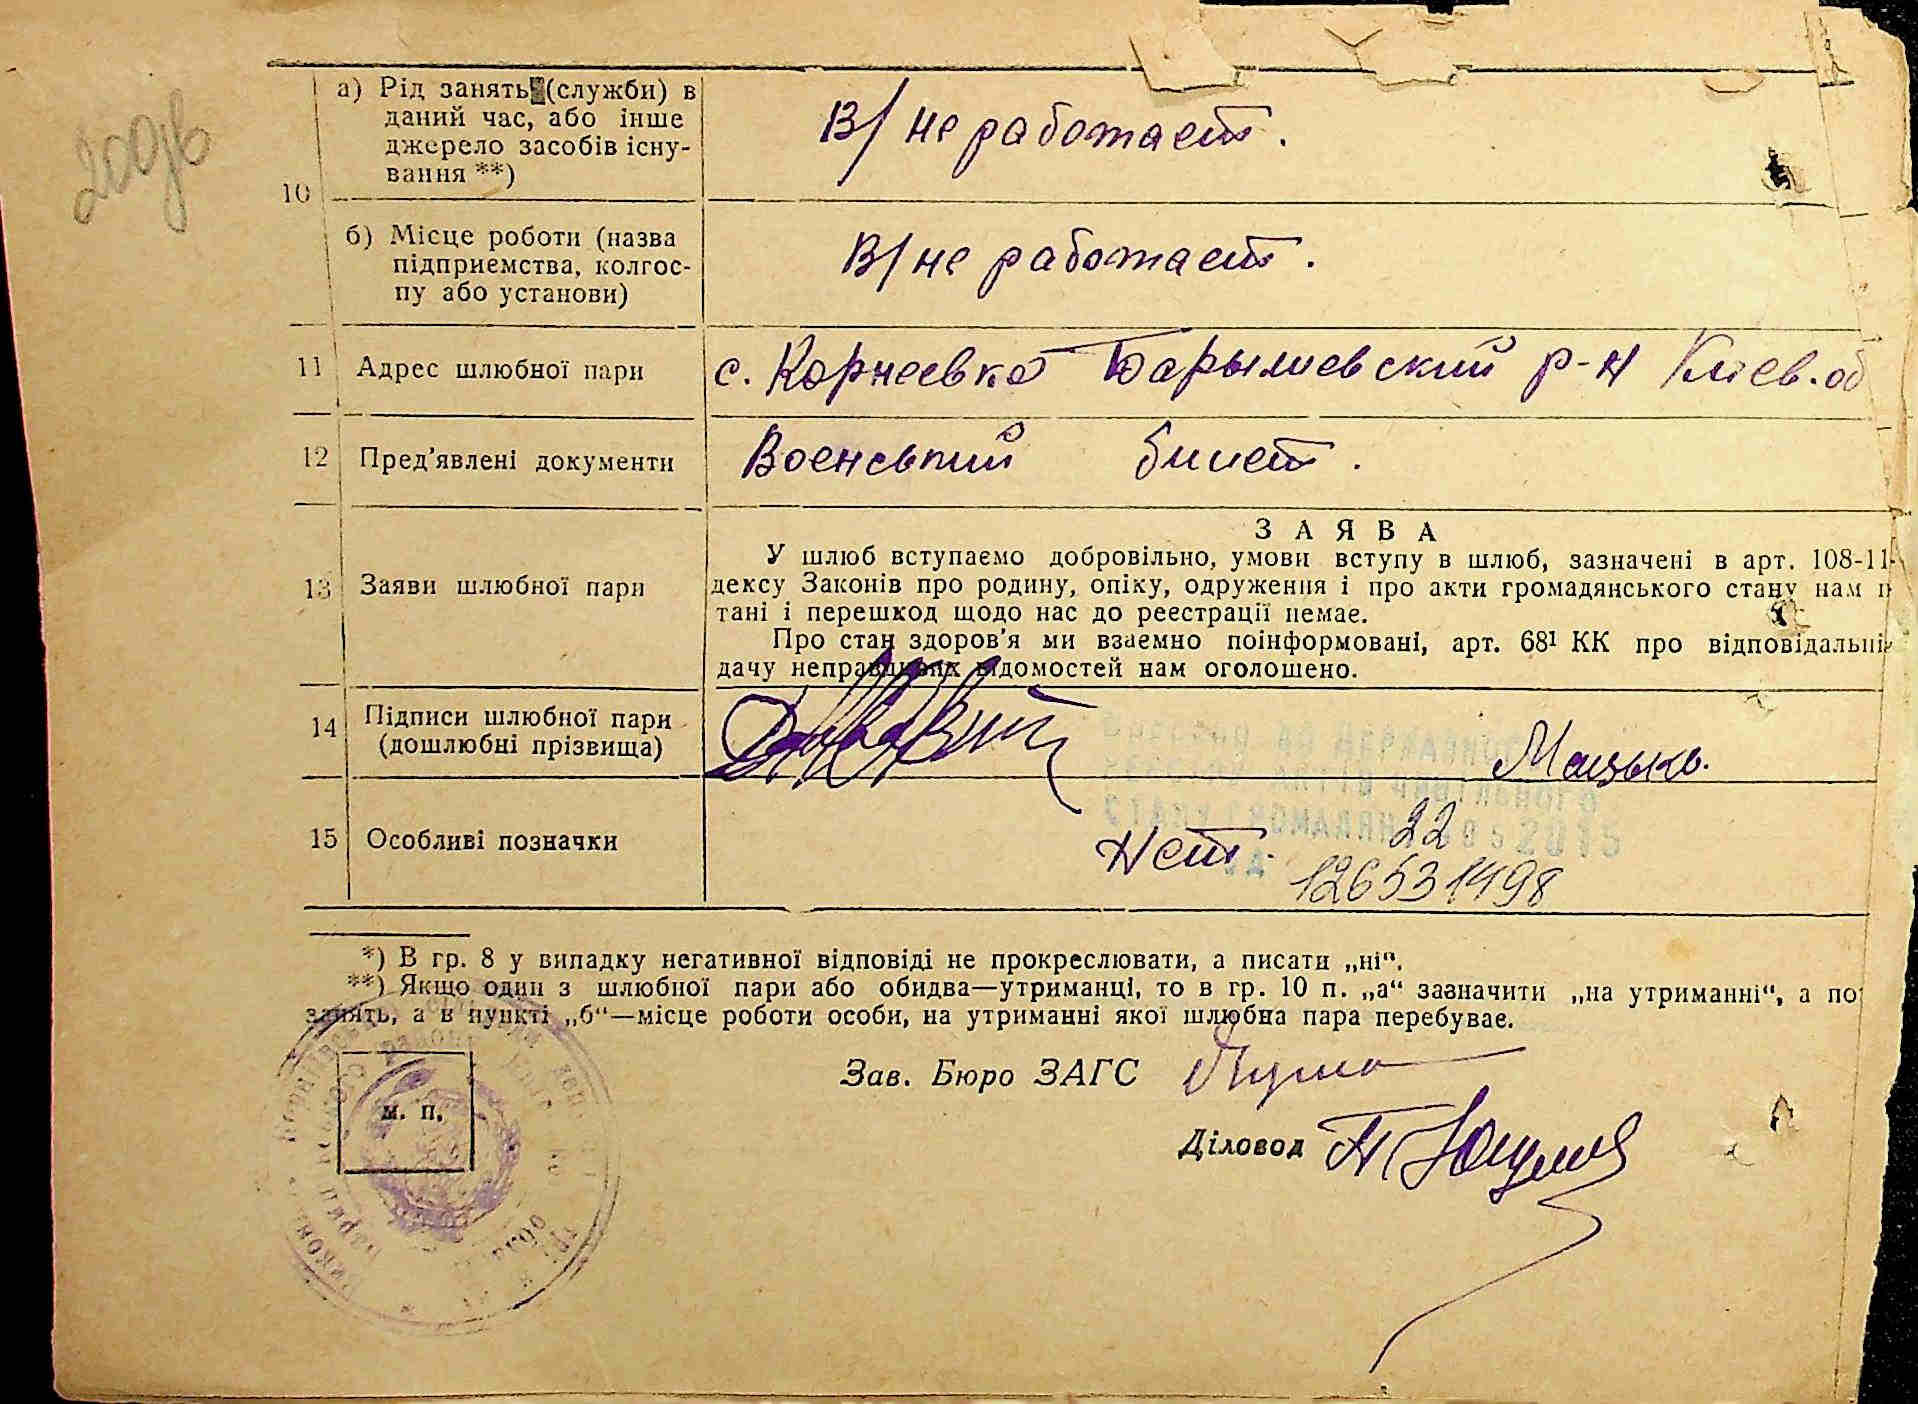 а) Рід занять (служби) в
даний час, або інше
джерело засобів існу-
вання **)
В/ не работает.
10
б) Місце роботи (назва
підприємства, колгос-
пу або установи)
В/ не работает.
11 Адрес шлюбної пари
с. Корнеевка Барышевский р-н Киев. об
12 Пред'явлені документи
Военський билет.
13 Заяви шлюбної пари
ЗАЯВА
У шлюб вступаємо добровільно, умови вступу в шлюб, зазначені в арт. 108-11
дексу Законів про родину, опіку, одруження і про акти громадянського стану нам
тані і перешкод щодо нас до реєстрації немає.
Про стан здоров'я ми взаємно поінформовані, арт. 68¹ КК про відповідальні
дачу неправдивих відомостей нам оголошено.
14 Підписи шлюбної пари
(дошлюбні прізвища)
Мацько.
15 Особливі позначки
Нет.
22
*) В гр. 8 у випадку негативної відповіді не прокреслювати, а писати „ні“.
**) Якщо один з шлюбної пари або обидва—утриманці, то в гр. 10 п. „а“ зазначити „на утриманні“, а по
занять, а в пункті „б“—місце роботи особи, на утриманні якої шлюбна пара перебуває.
Зав. Бюро ЗАГС
м. п.
Діловод